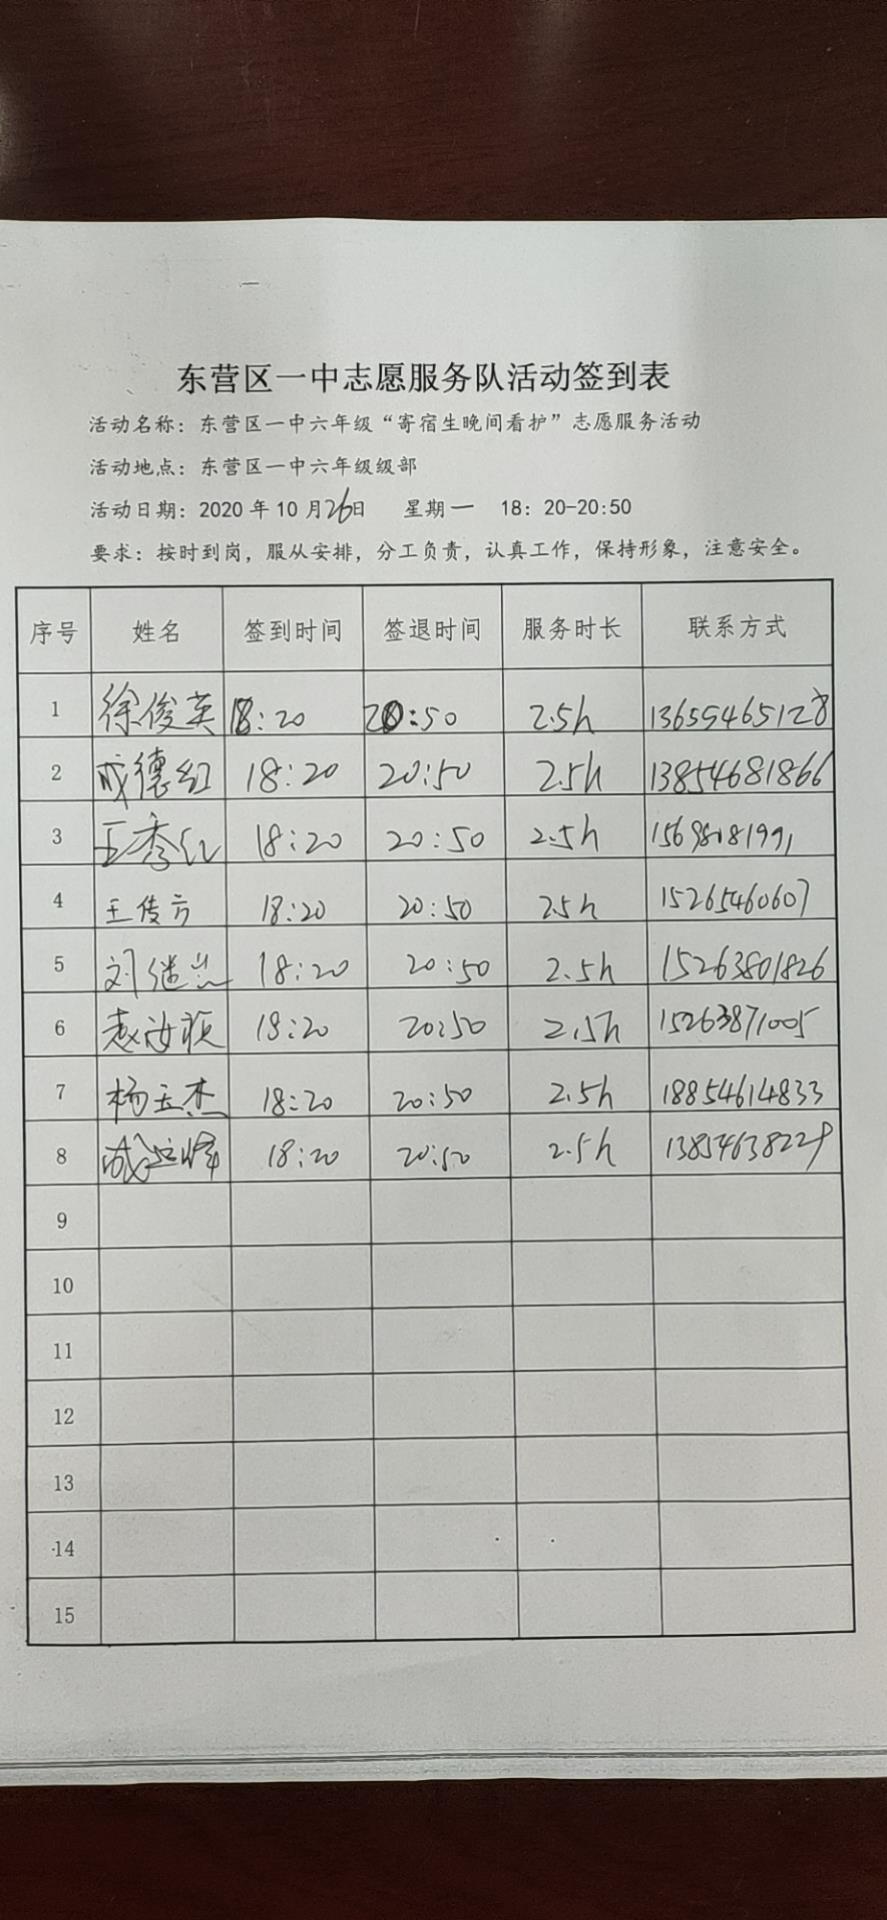 东营区一中志愿服务队活动签到表
活动名称：东营区一中六年级“寄宿生晚间看护”志愿服务活动
活动地点：东营区一中六年级级部
活动日期：2020 年 10 月 26日 星期一 18：20-20:50
要求：按时到岗，服从安排，分工负责，认真工作，保持形象，注意安全。
序号 姓名 签到时间 签退时间 服务时长 联系方式
1 徐俊英 18:20 20:50 2.5h 13655465128
2 成德红 18:20 20:50 2.5h 13854681866
3 王秀红 18:20 20:50 2.5h
4 王传方 18:20 20:50 2.5h 15265460607
5 刘继兰 18:20 20:50 2.5h 15263801826
6 18:20 20:50 2.5h 15263871005
7 杨玉杰 18:20 20:50 2.5h 18854614833
8 18:20 20:50 2.5h 13854638229
9
10
11
12
13
14
15